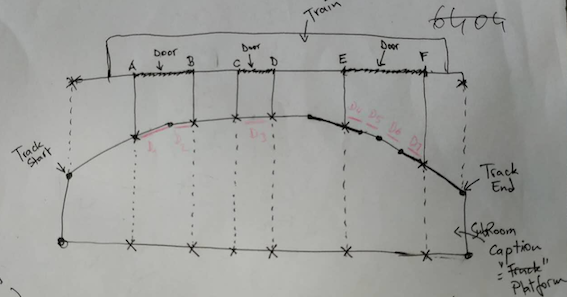 Train
6404
Door
Door
Door
A
B
C
D
E
F
D1
D2
D3
D4
D5
D6
Track
Start
Track
End
SubRoom
Caption
= "Track"
Platform